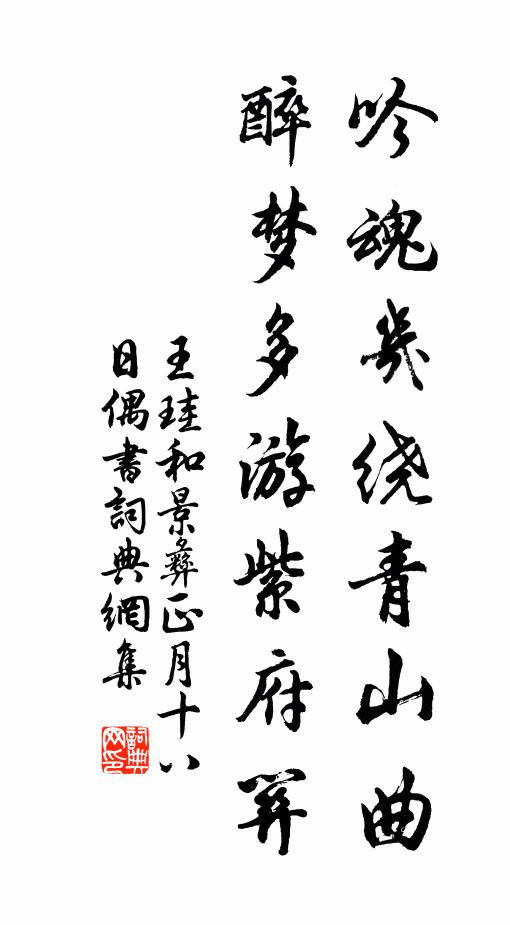 吟魂幾绕青山曲
醉梦多游紫府
王珪和景彝正月十八
日偶書詞典網集
詞典网印